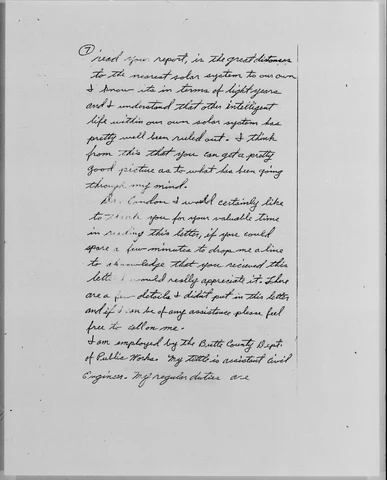 ⑦ read your report, is the great distances
to the nearest solar system to our own
I know its in terms of light years
and I understand that other intelligent
life within our own solar system has
pretty well been ruled out. I think
from this that you can get a pretty
good picture as to what has been going
through my mind.
Dr. Condon I would certainly like
to thank you for your valuable time
in reading this letter, if you could
spare a few minutes to drop me a line
to acknowledge that you recieved this
letter I would really appreciate it. There
are a few details I didn't put in this letter
and if I can be of any assistance please feel
free to call on me.
I am employed by the Butte County Dept.
of Public Works. My tittle is assistant Civil
Engineer. My regular duties are